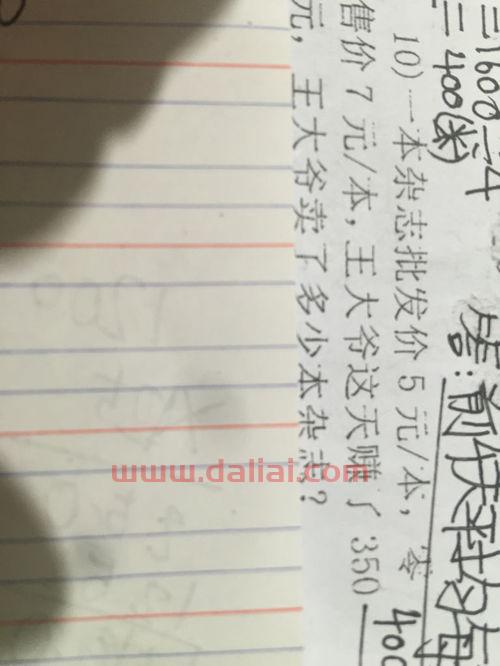 =1600÷4
=400(米)
答:前伙平均每
400
10) 一本杂志批发价 5 元/本, 零
售价 7 元/本, 王大爷这天赚了 350
元, 王大爷卖了多少本杂志?
www.daliai.com